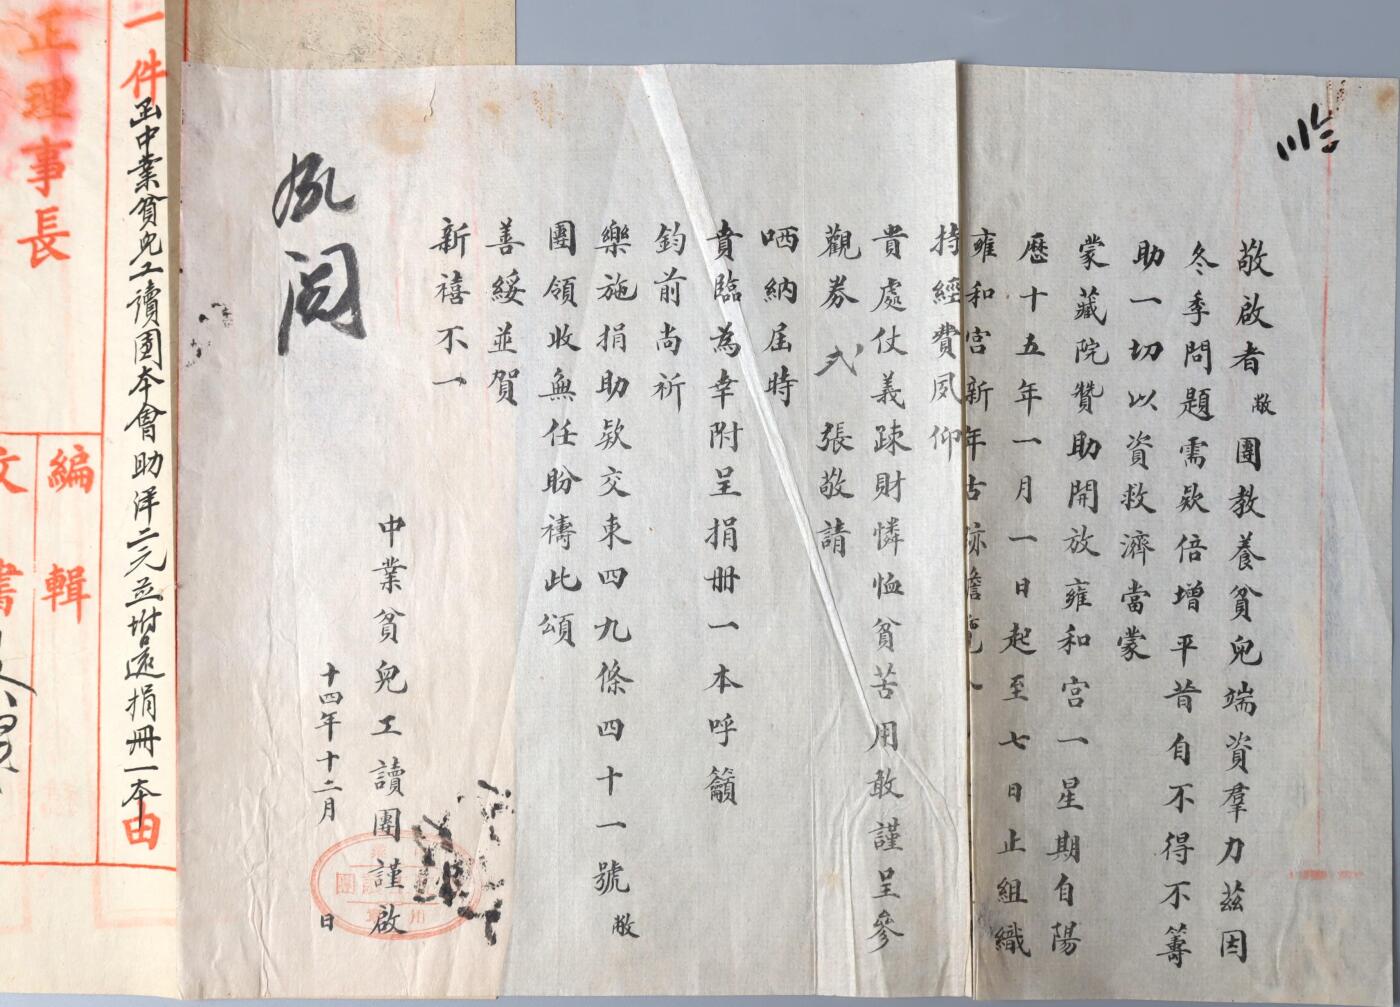 敬啟者敝團教養貧兒端資羣力茲因
冬季問題需款倍增平昔自不得不籌
助一切以資救濟當蒙
蒙藏院贊助開放雍和宮一星期自陽
歷十五年一月一日起至七日止組織
雍和宮新年古
持經費夙仰
貴處仗義疎財憐恤貧苦用敢謹呈參
觀券弍張敬請
哂納屆時
賁臨為幸附呈捐冊一本呼籲
鈞前尚祈
樂施捐助款交東四九條四十一號敝
團領收無任盼禱此頌
善綏並賀
新禧不一
中業貧兒工讀團謹啟
十四年十二月 日
一件函中業貧兒工讀團本會助洋二元並坿還捐冊一本由
編輯
文書
正理事長